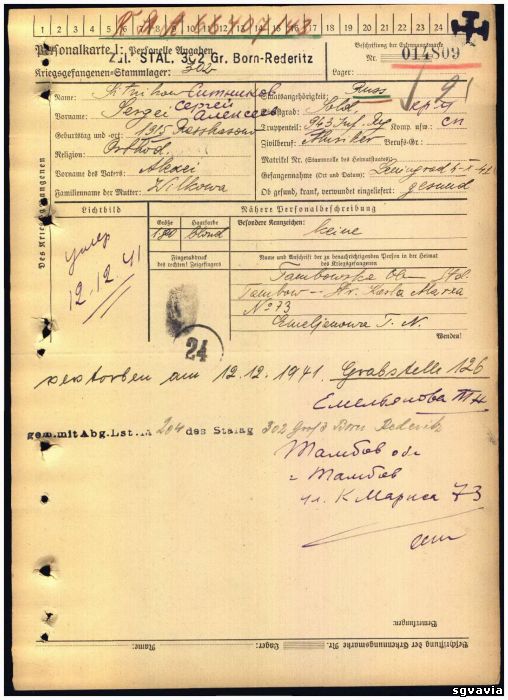 1 2 3 4 5 6 7 8 9 10 11 12 13 14 15 16 17 18 19 20 21 22 23 24
Personalkarte I: Personelle Angaben
Beschriftung der Erkennungsmarke
Zu: STAL, 302 Gr. Born-Rederitz
Nr. 014809
Kriegsgefangenen-Stammlager: 302
Lager:
Des Kriegsgefangenen
Name: Ситников
Staatsangehörigkeit: Russ
Vorname: Sergei Сергей Алексеев
Dienstgrad: Sold
Truppenteil: 943 Inf. Reg Komp. usw.
Geburtstag und -ort: 1915
Zivilberuf: Musiker Berufs-Gr.
Religion: Orthod.
Matrikel Nr. (Stammrolle des Heimatstaates)
Vorname des Vaters: Alexei
Gefangennahme (Ort und Datum): Leningrad
Familienname der Mutter: Wilkowa
Ob gesund, krank, verwundet eingeliefert: gesund
Lichtbild
Nähere Personalbeschreibung
Größe
Haarfarbe
Besondere Kennzeichen: keine
180
blond
умер
12.12.41
Fingerabdruck
des rechten! Zeigefingers
Name und Anschrift der zu benachrichtigenden Person in der Heimat
des Kriegsgefangenen
Tambow - Str. Karla Marxa
№ 73
Emeljenowa T. N.
24
Wenden!
verstorben am 12.12.1941. Grabstelle 126
Емельянова ТН
gem.mit Abg.Lst. № 204 des Stalag 302 Groß Born Rederitz
Тамбов обл
г Тамбов
ул. К Маркса 73
Bemerkungen:
Beschriftung der Erkennungsmarke Nr. Lager: Name:
sgvavia